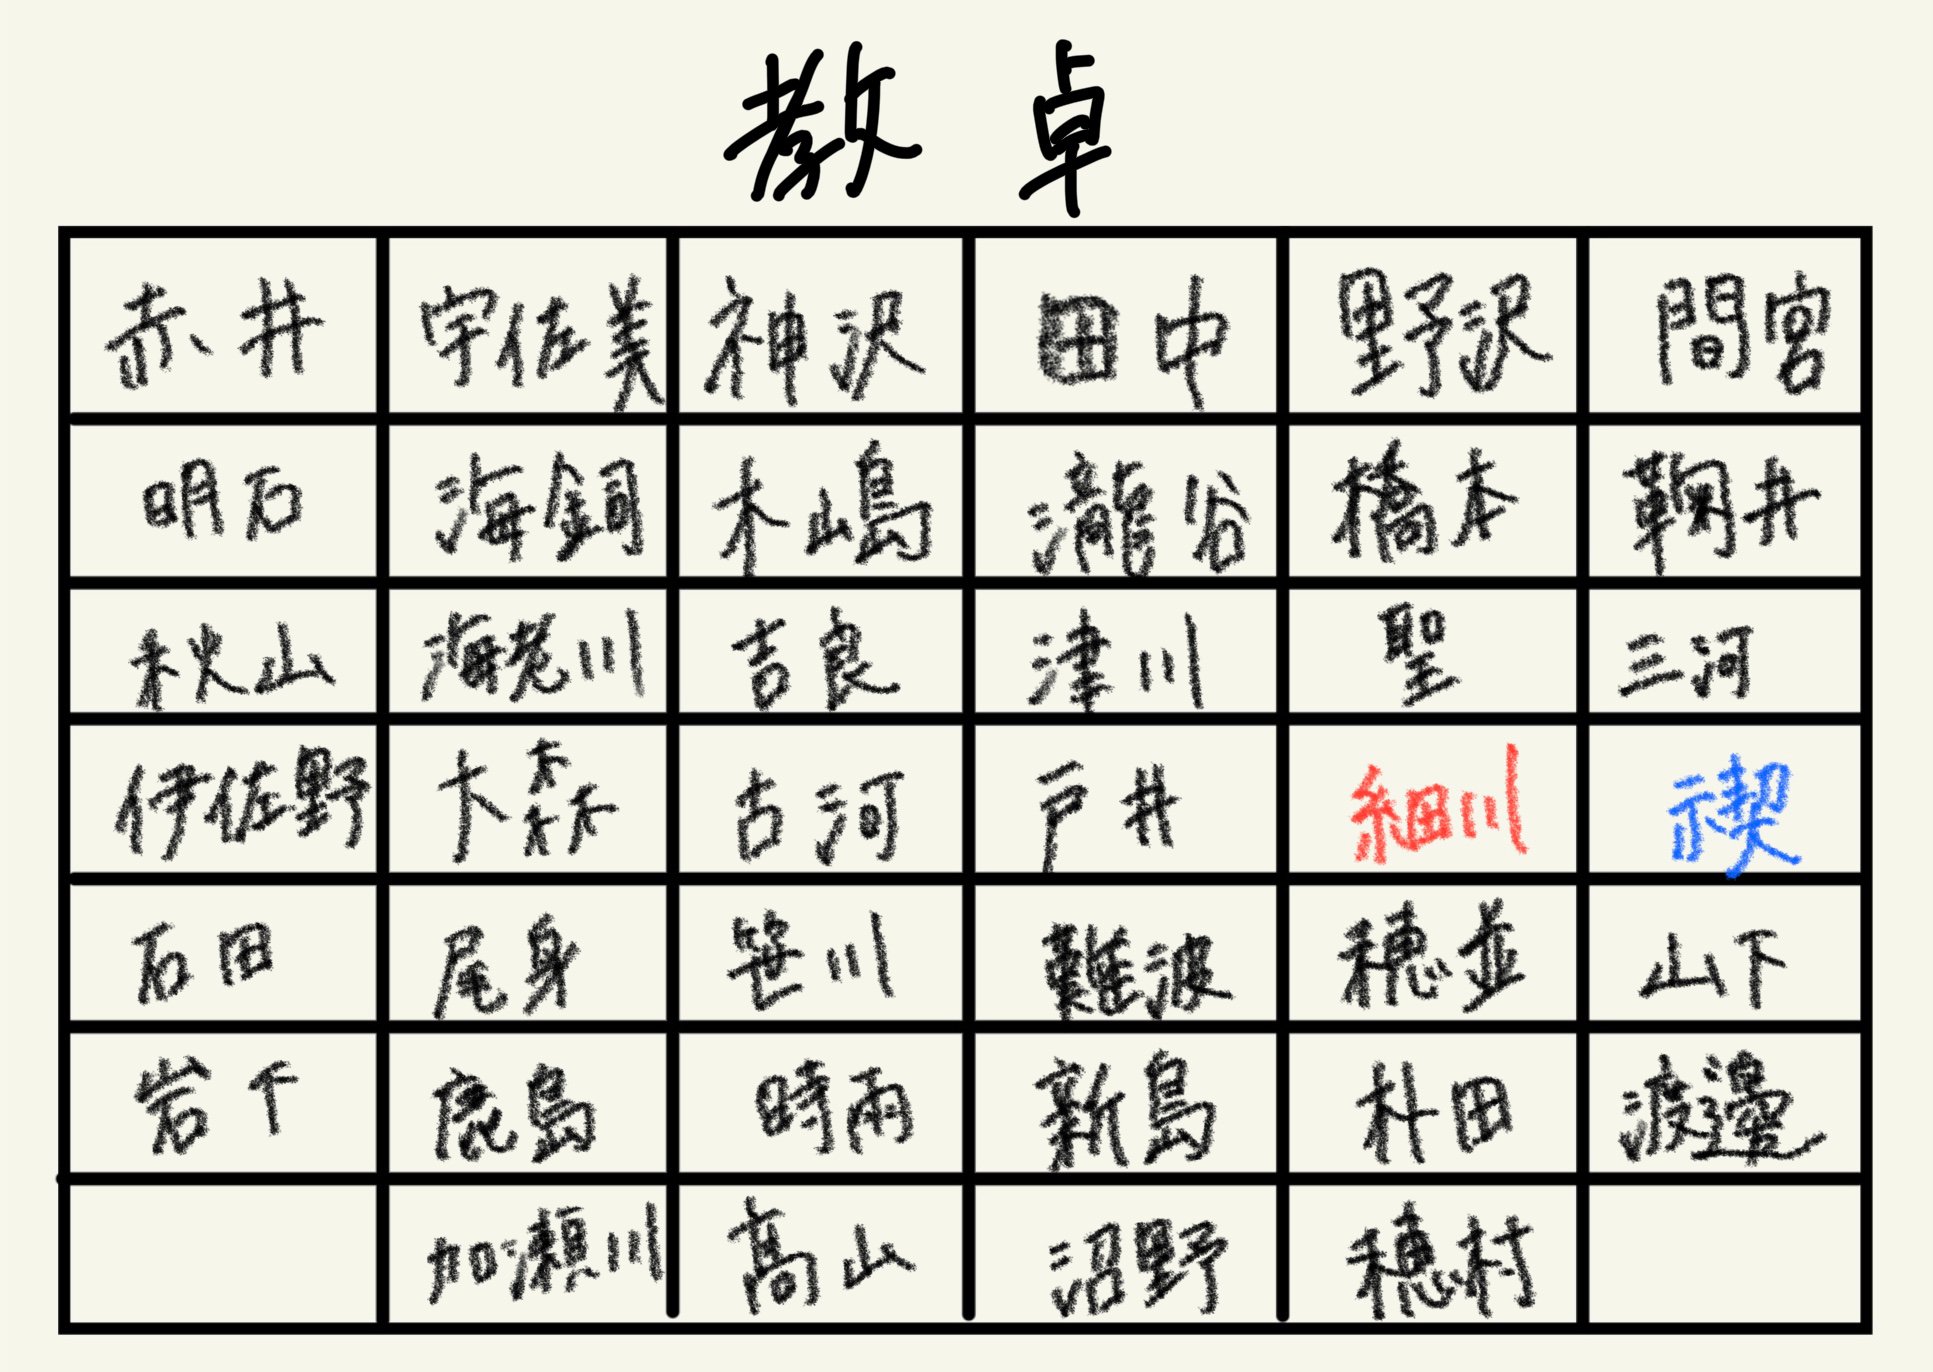 教卓
赤井 宇佐美 神沢 田中 野沢 間宮
明石 海銅 木嶋 瀧谷 橋本 鞠井
秋山 海老川 吉良 津川 聖 三河
伊佐野 大森 古河 戸井 細川 禊
石田 尾身 笹川 難波 穂並 山下
岩下 鹿島 時雨 新島 朴田 渡邊
加瀬川 高山 沼野 穂村